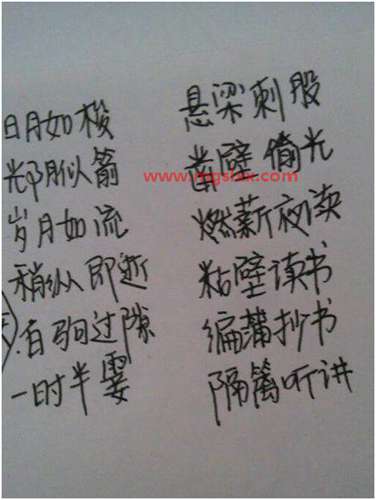 日月如梭 悬梁刺股
光阴似箭 凿壁偷光
岁月如流 燃薪夜读
稍纵即逝 粘壁读书
白驹过隙 编蒲抄书
一时半霎 隔篱听讲